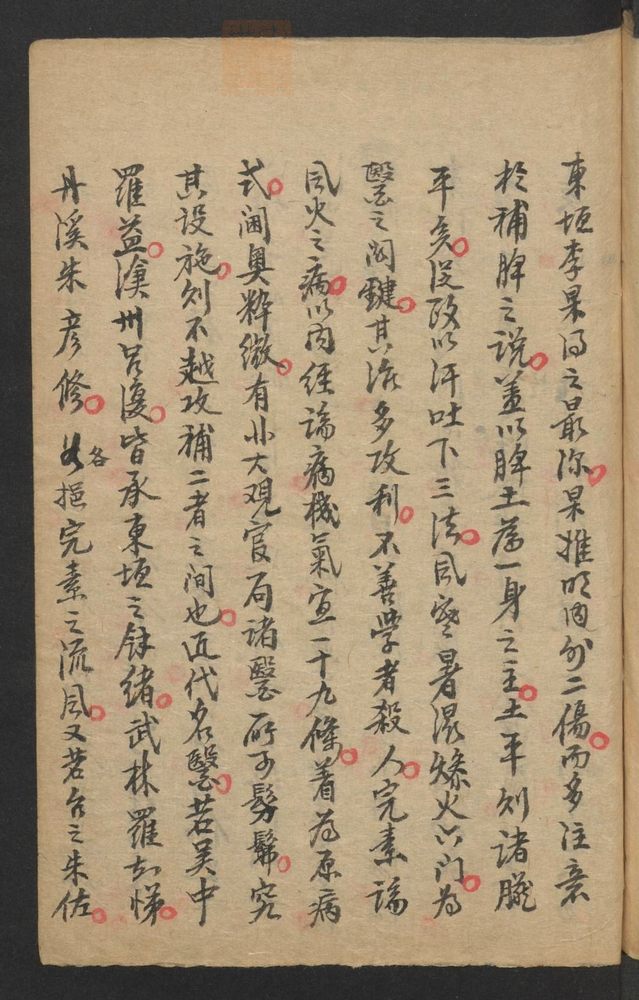 東垣李杲得之最深。杲推明內外二傷。而多注意
於補脾之說。盖以脾土爲一身之主。土平則諸臟
平矣。從政以汗吐下三法。風寒暑濕燥火六门。为
醫之関鍵。其法多攻利。不善學者殺人。完素論
風火之病。以内經論病機氣宜一十九條。著为原病
式。阃奥粹微。有非大观官局諸醫所可髣髴。究
其設施。则不越攻補二者之间也。近代名醫。若吴中
羅益。滄州吕復。皆承東垣之餘緒。武林羅知悌。
丹溪朱彦修。各挹完素之流風。又若台之朱佐。